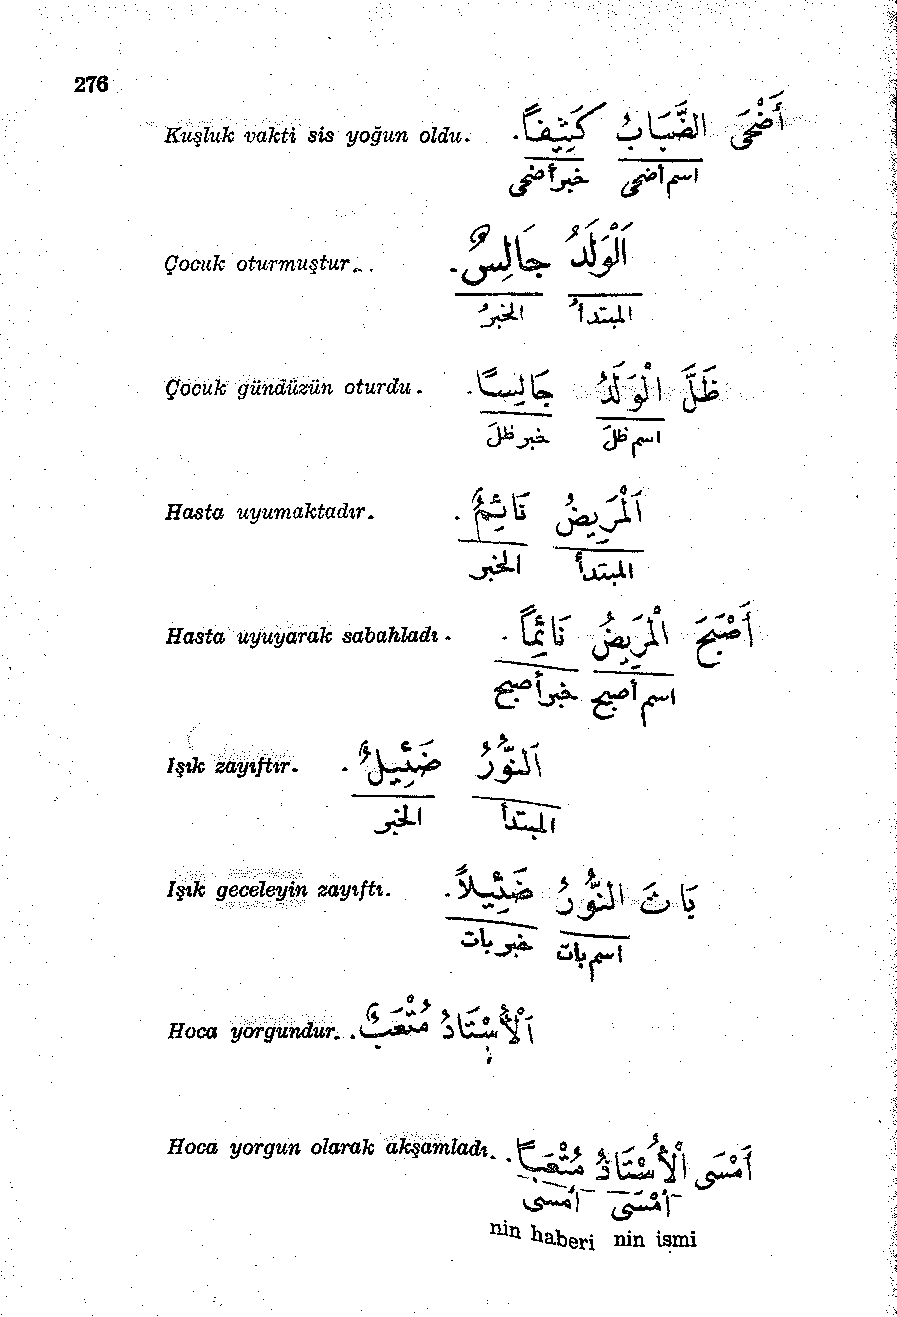 276
Kuşluk vakti sis yoğun oldu. أَضْحَى الضَّبَابُ كَثِيفًا.
اسم أضحى خبر أضحى
Çocuk oturmuştur.. اَلْوَلَدُ جَالِسٌ.
المبتدأُ الخبرُ
Çocuk gündüzün oturdu. ظَلَّ الْوَلَدُ جَالِسًا.
اسم ظلَّ خبر ظلَّ
Hasta uyumaktadır. اَلْمَرِيضُ نَائِمٌ.
المبتدأ الخبر
Hasta uyuyarak sabahladı. أَصْبَحَ الْمَرِيضُ نَائِمًا.
اسم أصبح خبر أصبح
Işık zayıftır. اَلنُّورُ ضَئِيلٌ.
المبتدأ الخبر
Işık geceleyin zayıftı. بَاتَ النُّورُ ضَئِيلاً.
اسم بات خبر بات
Hoca yorgundur. اَلْأُسْتَاذُ مُتْعَبٌ.
Hoca yorgun olarak akşamladı. أَمْسَى الْأُسْتَاذُ مُتْعَبًا.
أَمْسَى أمسى
nin haberi nin ismi